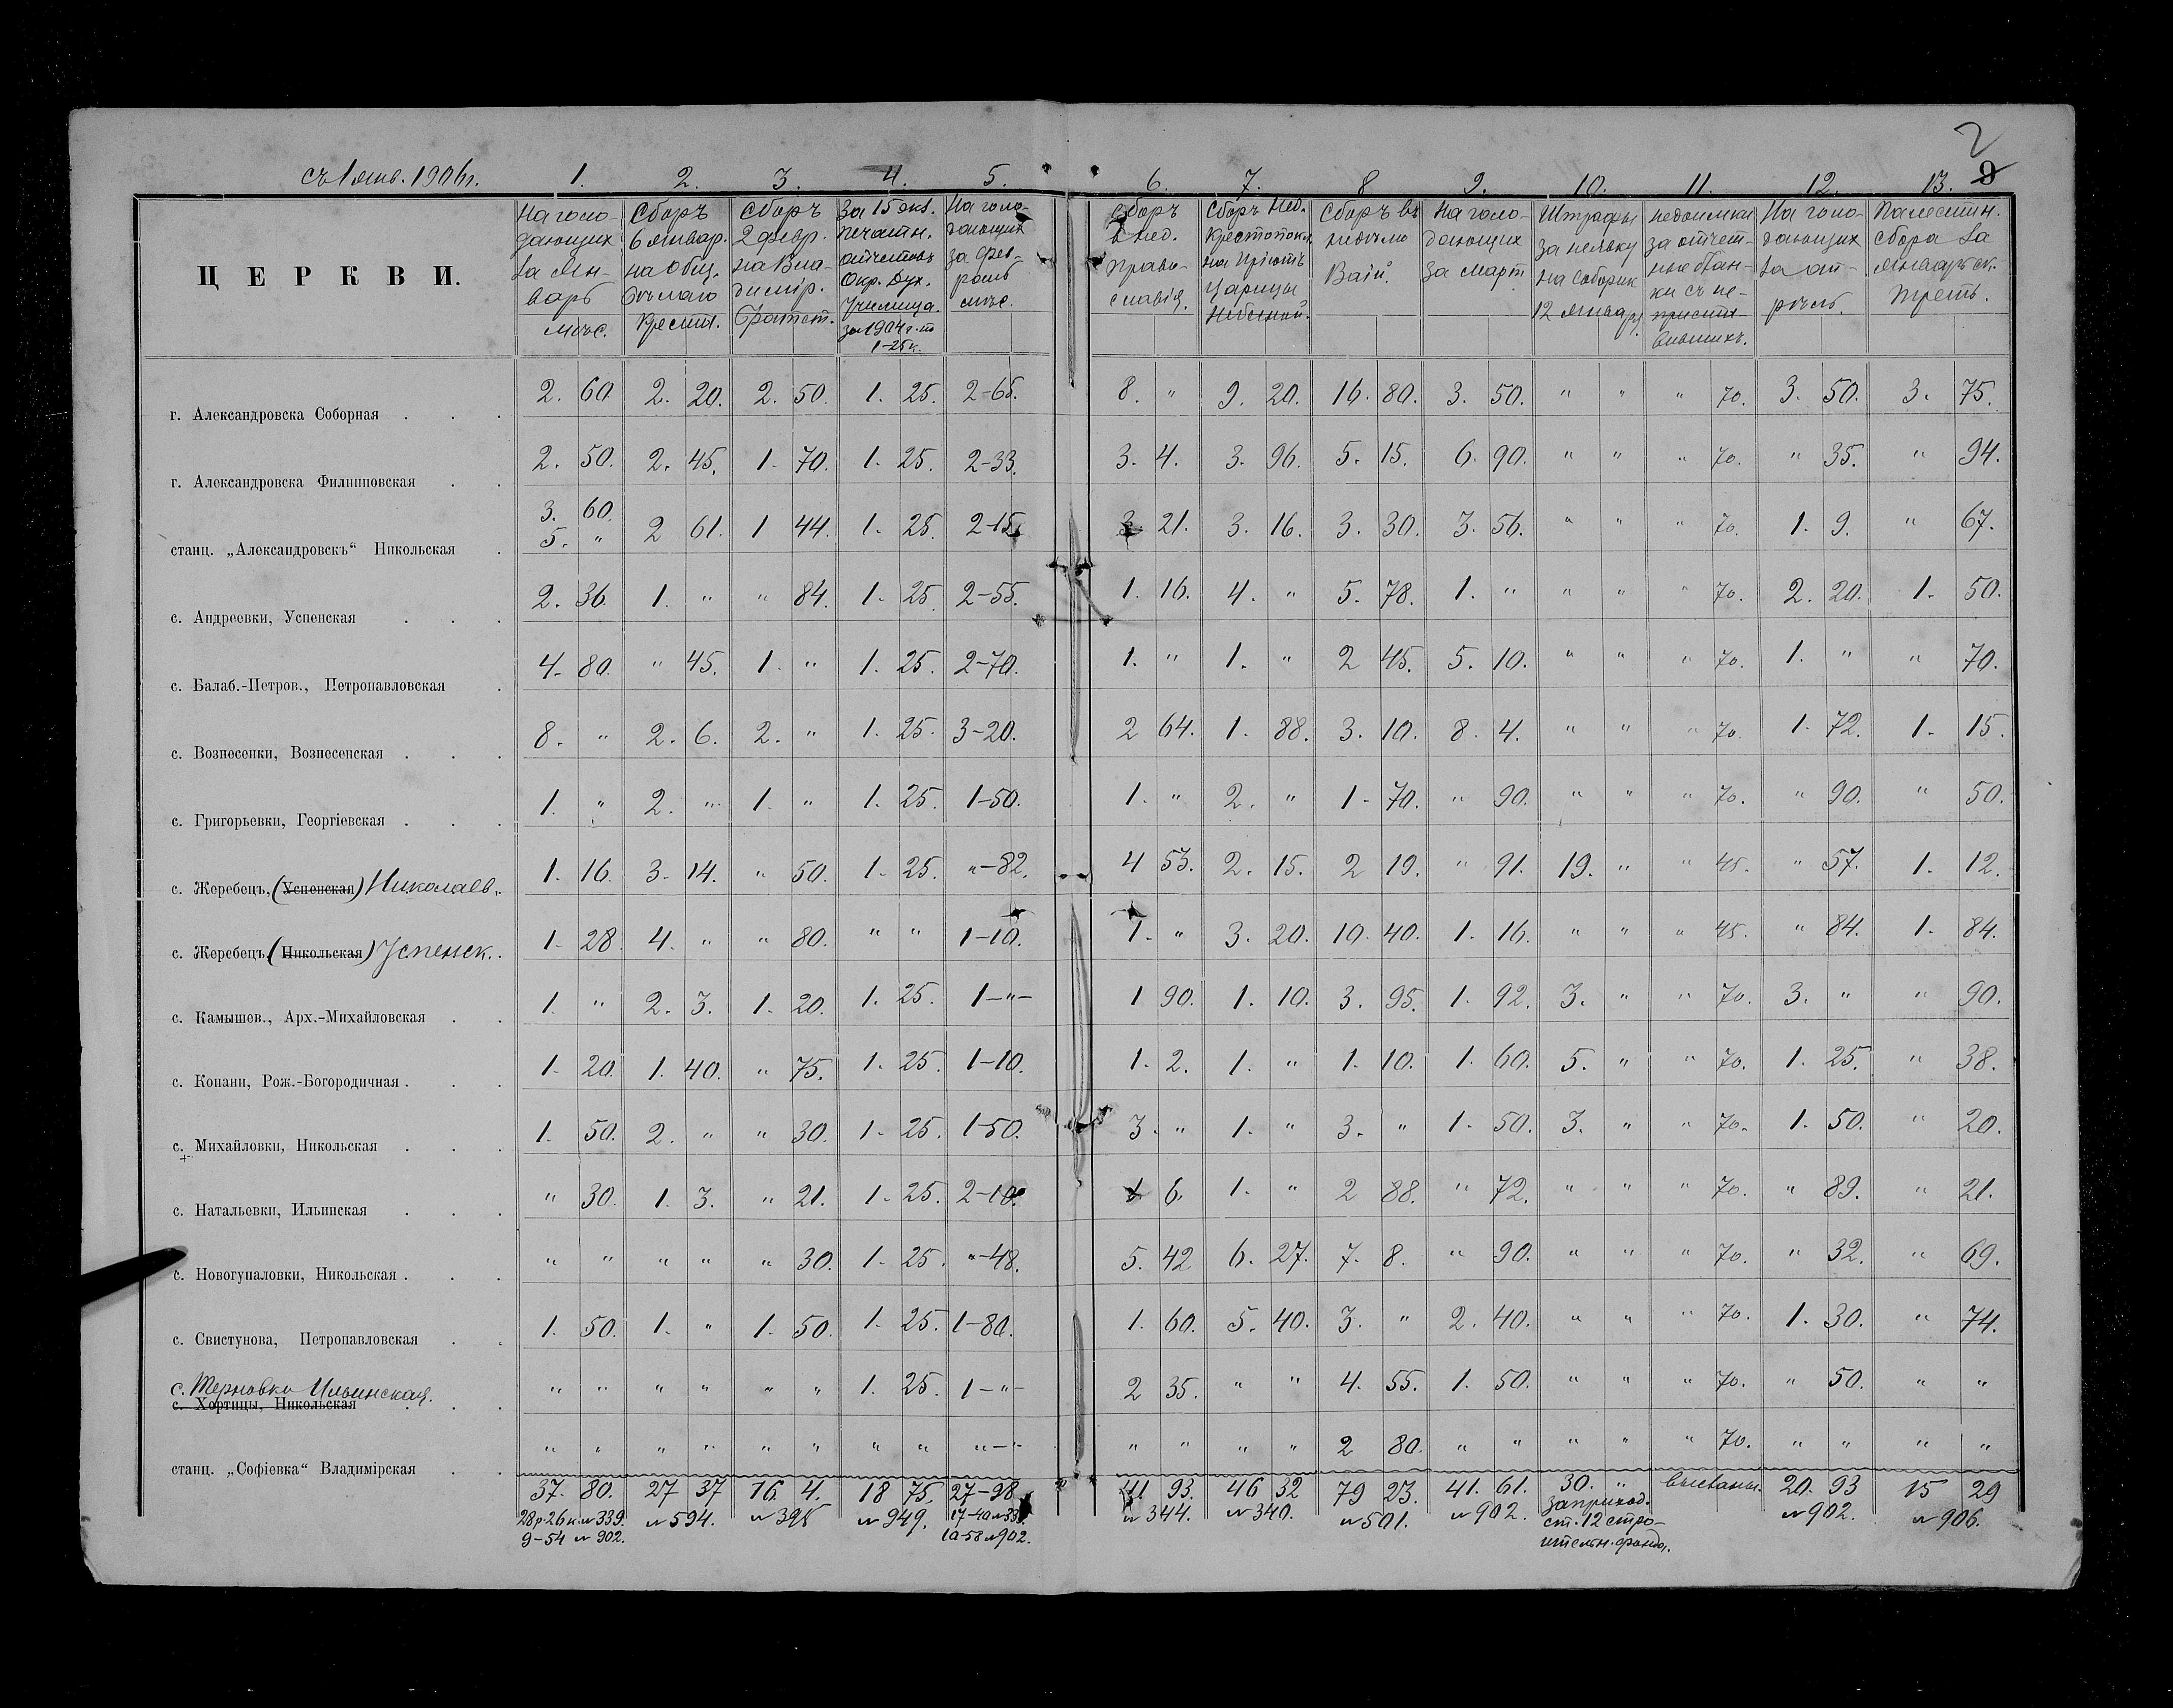 2
съ 1 янв. 1906 г. 1. 2. 3. 4. 5. 6. 7. 8 9. 10. 11. 12. 13. 9
ЦЕРКВИ.
На голо-
дающих
за Ян-
варь
мѣс.
Сборъ
6 январ.
на Общ.
Бѣлаго
Креста.
Сборъ
2 февр.
на Вла-
димір.
Братст.
За 15 экз.
печатн.
отчетовъ
Окр. Дух.
Училища.
за 1904 г. по
1-25 к.
На голо-
дающих
за фев-
раль
мѣс.
Сборъ
в нед.
Право-
славія.
Сборъ Нед.
Крестопокл.
на Пріютъ
Царицы
Небесной.
Сборъ въ
недѣлю
Ваій
На голо-
дающих
за март
Штрафы
за неявку
на соборик
12 января
недоимки
за отчет-
ные блан-
ки съ не-
Na голо-
дающих
за ап-
рѣль.
Палестин.
сбора за
Январьск.
треть.
г. Александровска Соборная . . . 2. 60. 2. 20. 2. 50. 1. 25. 2-65. 8. " 9. 20. 16. 80. 3. 50. " " " 70. 3. 50. 3. 75.
г. Александровска Филипповская . . 2. 50. 2. 45. 1. 70. 1. 25. 2-33. 3. 4. 3. 96. 5. 15. 6. 90. " " " 70. " 35. " 94.
3. 60.
станц. „Александровскъ“ Никольская . 5. " 2 61. 1 44. 1. 25. 2-15. 3. 21. 3. 16. 3. 30. 3. 56. " " " 70. 1. 9. " 67.
с. Андреевки, Успенская . . . 2. 36. 1. " " 84. 1. 25. 2-55. 1. 16. 4. " 5. 78. 1. " " " " 70. 2. 20. 1. 50.
с. Балаб.-Петров., Петропавловская . 4. 80. " 45. 1. " 1. 25. 2-70. 1. " 1. " 2 45. 5. 10. " " " 70. 1. " " 70.
с. Вознесенки, Вознесенская . . . 8. " 2. 6. 2. " 1. 25. 3-20. 2 64. 1. 88. 3. 10. 8. 4. " " " 70. 1. 72. 1. 15.
с. Григорьевки, Георгіевская . . . 1. " 2. " 1. " 1. 25. 1-50. 1. " 2. " 1- 70. " 90. " " " 70. " 90. " 50.
с. Жеребецъ, (Успенская) Николаев. 1. 16. 3. 14. " 50. 1. 25. "-82. 4 53. 2. 15. 2 19. " 91. 19. " " 45. " 57. 1. 12.
с. Жеребецъ (Никольская) Успенск. 1. 28. 4. " " 80. " " 1-10. 1. " 3. 20. 10. 40. 1. 16. " " " 45. " 84. 1. 84.
с. Камышев., Арх.-Михайловская . . 1. " 2. 3. 1. 20. 1. 25. 1-"- 1 90. 1. 10. 3. 95. 1. 92. 3. " " 70. 3. " " 90.
с. Копани, Рож.-Богородичная . . . 1. 20. 1. 40. " 75. 1. 25. 1-10. 1. 2. 1. " 1. 10. 1. 60. 5. " " 70. 1. 25. " 38.
с. Михайловки, Никольская . . . 1. 50. 2. " " 30. 1. 25. 1-50. 3. " 1. " 3. " 1. 50. 3. " " 70. 1. 50. " 20.
с. Натальевки, Ильинская . . . " 30. 1. 3. " 21. 1. 25. 2-10. 1 6. 1. " 2 88. " 72. " " " 70. " 89. " 21.
с. Новогупаловки, Никольская . . . " " " " " 30. 1. 25. "-48. 5. 42 6. 27. 7. 8. " 90. " " " 70. " 32. " 69.
с. Свистунова, Петропавловская . . 1. 50. 1. " 1. 50. 1. 25. 1-80. 1. 60. 5. 40. 3. " 2. 40. " " " 70. 1. 30. " 74.
с. Терновки Ильинская. " " " " " " 1. 25. 1-"- 2 35. " " 4. 55. 1. 50. " " " 70. " 50. " "
с. Хортицы, Никольская
станц. „Софіевка“ Владимірская . . " " " " " " " " "-"- " " " " 2 80. " " " " " 70. " " " "
37. 80. 27 37 16. 4. 18 75. 27-98 41 93. 46 32 79 23. 41. 61. 30. " 20. 93 15 29
28 р. 26 к. № 339. № 594. № 395 № 949. № 344. № 340. № 501. № 902. № 902. № 906.
9-54 № 902. 10-58 № 902.